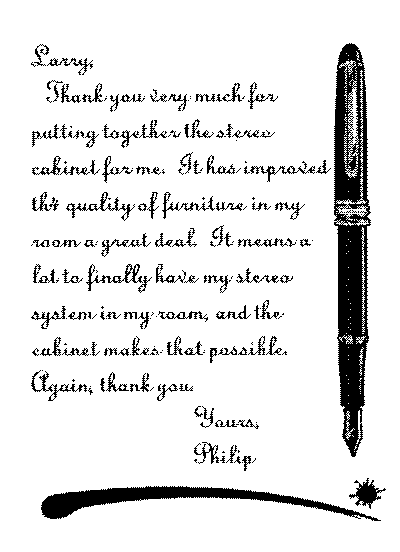 Larry,
Thank you very much for
putting together the stereo
cabinet for me. It has improved
th4 quality of furniture in my
room a great deal. It means a
lot to finally have my stereo
system in my room, and the
cabinet makes that possible.
Again, thank you.
Yours,
Philip